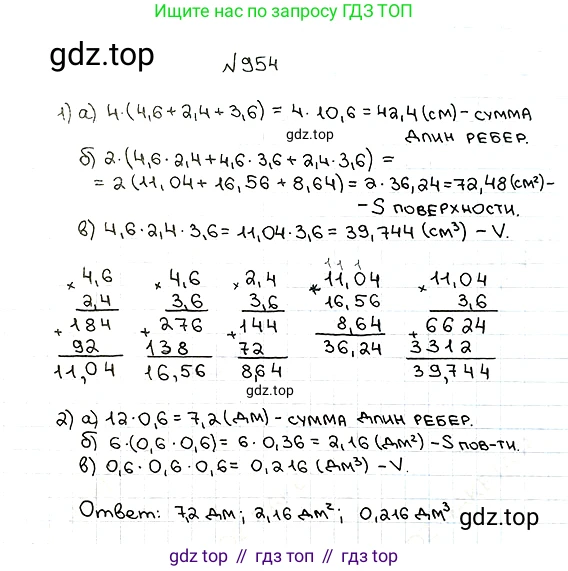 Ищите нас по запросу ГДЗ ТОП
gdz.top
№954
1) а) 4·(4,6+2,4+3,6) = 4·10,6=42,4(см)-сумма
gdz.top
длин ребер.
б) 2·(4,6·2,4+4,6·3,6+2,4·3,6) =
= 2(11,04+16,56+8,64)=2·36,24=72,48(см²)-
-S поверхности.
в) 4,6·2,4·3,6=11,04·3,6=39,744(см³)-V.
111
×4,6 ×4,6 ×2,4 +11,04 ×11,04
2,4 3,6 3,6 16,56 3,6
+184 +276 +144 8,64 +6624
92 138 72 36,24 3312
11,04 16,56 8,64 39,744
gdz.top
2) а) 12·0,6=7,2(дм)-сумма длин ребер.
б) 6·(0,6·0,6)=6·0,36=2,16(дм²)-S пов-ти.
в) 0,6·0,6·0,6=0,216(дм³)-V.
Ответ: 7,2 дм; 2,16 дм²; 0,216 дм³
gdz.top
gdz.top // гдз.топ // гдз топ